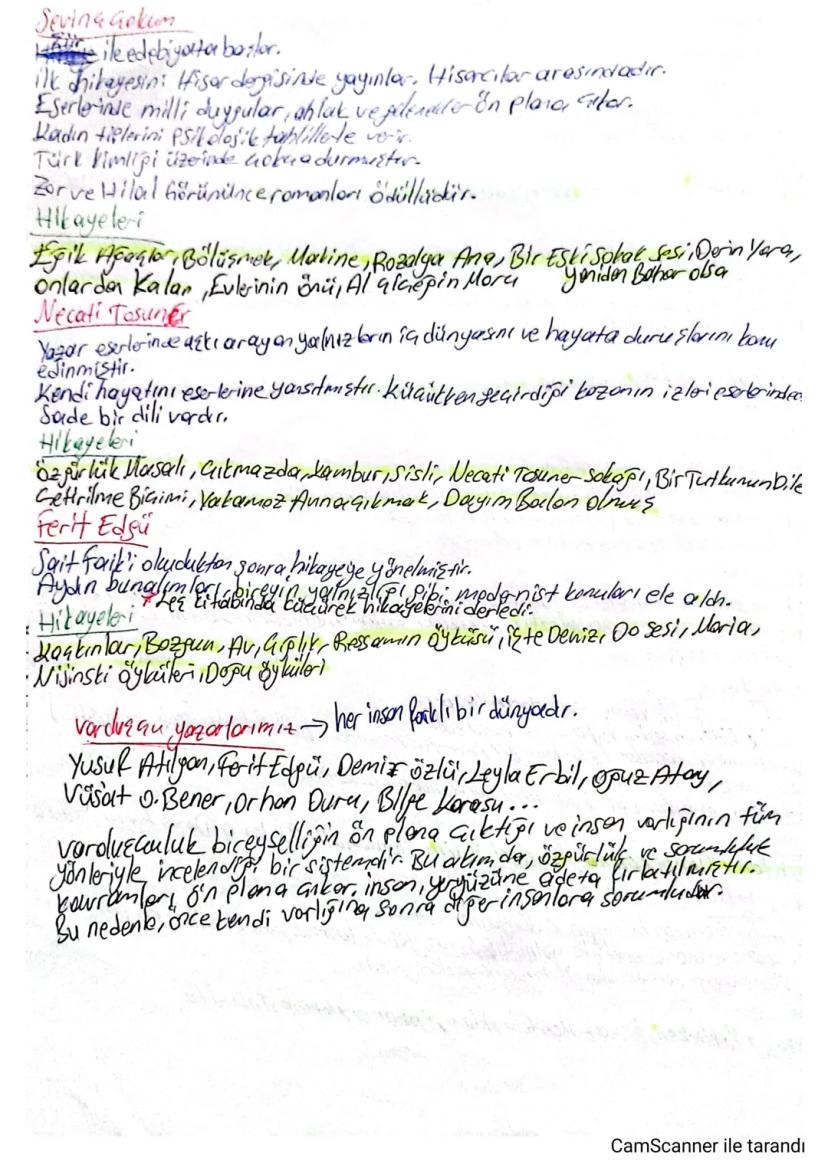 Sevinç Çokum
Şiir ile edebiyatta başlar.
İlk hikayesini Hisar dergisinde yayınlar. Hisarcılar arasındadır.
Eserlerinde milli duygular, ahlak ve gelenekler ön plana çıkar.
Kadın tiplerini psikolojik tahlillerle verir.
Türk kimliği üzerinde çokça durmuştur.
Zor ve Hilal Görününce romanları ödüllüdür.
Hikayeleri
Eğik Ağaçlar, Bölüşmek, Makine, Rozalya Ana, Bir Eski Sokak Sesi, Derin Yara,
onlardan Kalan, Evlerinin önü, Al çiçeğin Moru yeniden Bahar olsa
Necati Tosuner
Yazar eserlerinde aşkı arayan yalnızların iç dünyasını ve hayata duruşlarını konu
edinmiştir.
Kendi hayatını eserlerine yansıtmıştır. Küçükken geçirdiği kazanın izleri eserlerinden
Sade bir dili vardır.
Hikayeleri
Özgürlük Masalı, Çıkmazda, Kambur, Sisli, Necati Tosuner Sokağı, Bir Tutkunun Dile
Getirilme Biçimi, Yakamoz Avına çıkmak, Dayım Balon olmuş
Ferit Edgü
Sait Faik'i okuduktan sonra hikayeye yönelmiştir.
Aydın bunalımları, bireyin yalnızlığı gibi modernist konuları ele aldı.
* Leş kitabında küçürek hikayelerini derledi.
Hikayeleri
Kaçkınlar, Bozgun, Av, Çığlık, Ressamın öyküsü, İşte Deniz, Do Sesi, Maria,
Nijinski öyküleri, Doğu öyküleri
varduşçu yazarlarımız → her insan farklı bir dünyadır.
Yusuf Atılgan, Ferit Edgü, Demir özlü, Leyla Erbil, oğuz Atay,
Vüsat O. Bener, Orhan Duru, Bilge Karasu...
varoluşçuluk bireyselliğin ön plana çıktığı ve insan varlığının tüm
yönleriyle incelendiği bir sistemdir. Bu akımda, özgürlük ve sorumluluk
kavramları ön plana çıkar. insan, yeryüzüne adeta fırlatılmıştır.
Bu nedenle, önce kendi varlığına sonra diğer insanlara sorumludur.
CamScanner ile tarandı